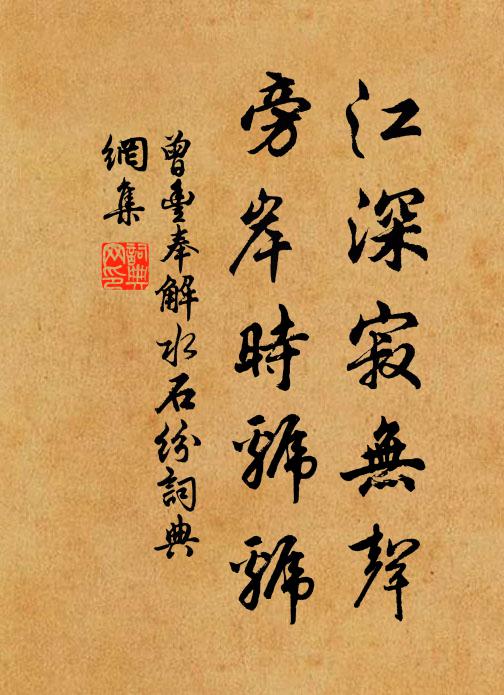 江深寂無聲
旁岸時號號
曾豐奉解水石紛詞典
網集
詞典
网印